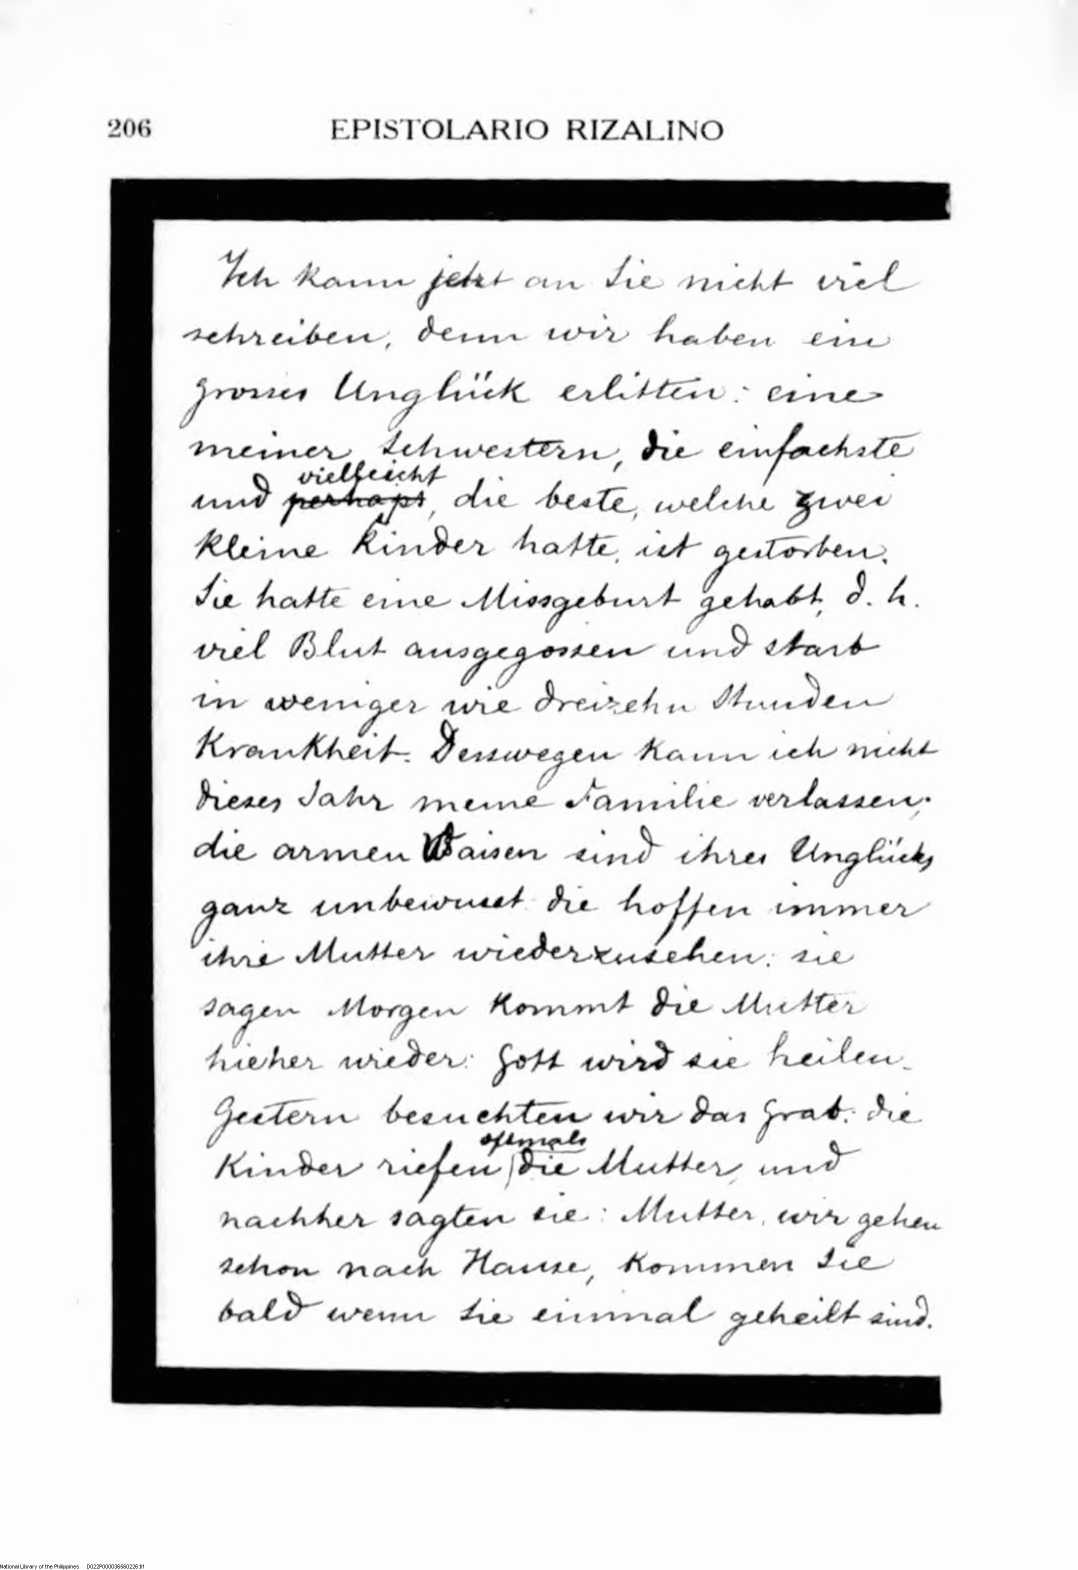 206 EPISTOLARIO RIZALINO
Ich kann jetzt an Sie nicht viel
schreiben, denn wir haben ein
grosses Unglück erlitten: eine
meiner Schwestern, die einfachste
vielleicht
und perhaps, die beste, welche zwei
kleine Kinder hatte, ist gestorben.
Sie hatte eine Missgeburt gehabt, d. h.
viel Blut ausgegossen und starb
in weniger wie dreizehn Stunden
Krankheit. Desswegen kann ich nicht
dieses Jahr meine Familie verlassen;
die armen Waisen sind ihres Unglücks
ganz unbewusst die hoffen immer
ihre Mutter wiederzusehen: sie
sagen Morgen kommt die Mutter
hieher wieder: Gott wird sie heilen.
Gestern besuchten wir das Grab: die
oftmals
Kinder riefen die Mutter, und
nachher sagten sie: Mutter, wir gehen
schon nach Hause, kommen Sie
bald wenn Sie einmal geheilt sind.
National Library of the Philippines